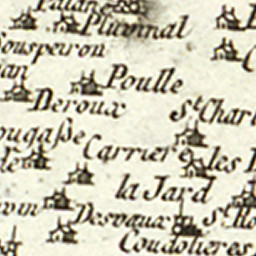 Pluvinal
Souspeiron
Poulle
Deroux
St. Charl
ougasse
Carriere
les
la Jard
Desvaux
Coudolieres